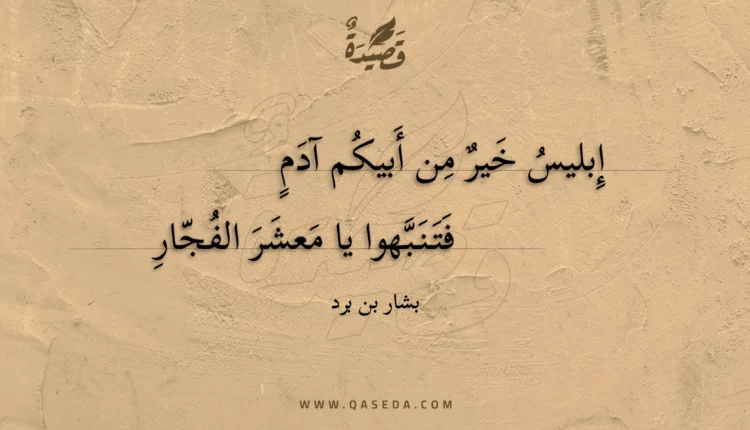 قَصِيْدَةٌ
إِبليسُ خَيرٌ مِن أَبيكُم آدَمٍ
فَتَنَبَّهوا يا مَعشَرَ الفُجّارِ
بشار بن برد
WWW.QASEDA.COM